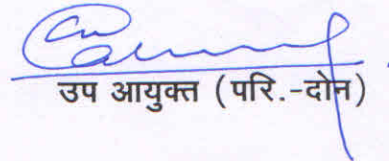 उप आयुक्त (परि.-दोन)